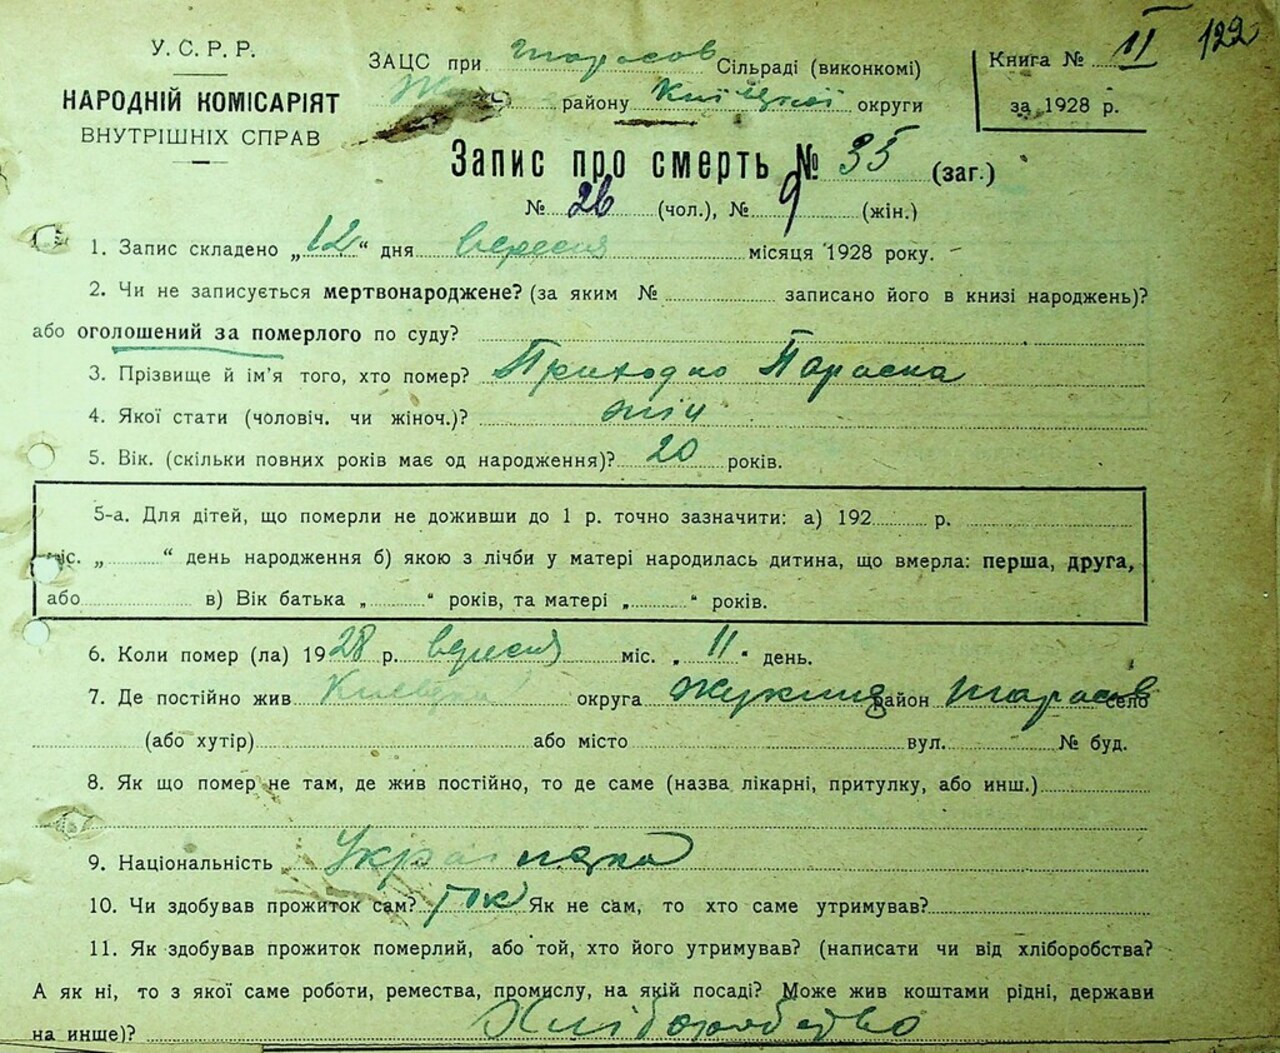 У. С. Р. Р.
НАРОДНІЙ КОМІСАРІЯТ
ВНУТРІШНІХ СПРАВ
ЗАЦС при Тарасов Сільраді (виконкомі)
району Київської округи
Книга № II
за 1928 р.
122
Запис про смерть № 35 (заг.)
№ 26 (чол.), № 9 (жін.)
1. Запис складено „12“ дня вересня місяця 1928 року.
2. Чи не записується мертвонароджене? (за яким № записано його в книзі народжень)?
або оголошений за померлого по суду?
3. Прізвище й ім’я того, хто помер? Приходко Параска
4. Якої стати (чоловіч. чи жіноч.)? жін
5. Вік. (скільки повних років має од народження)? 20 років.
5-а. Для дітей, що померли не доживши до 1 р. точно зазначити: а) 192 р.
міс. „ “ день народження б) якою з лічби у матері народилась дитина, що вмерла: перша, друга,
або в) Вік батька „ “ років, та матері „ “ років.
6. Коли помер (ла) 1928 р. вересня міс. „11“ день.
7. Де постійно жив Київської округа район Тарасов село
(або хутір) або місто вул. № буд.
8. Як що помер не там, де жив постійно, то де саме (назва лікарні, притулку, або инш.)
9. Національність Українка
10. Чи здобував прожиток сам? Так Як не сам, то хто саме утримував?
11. Як здобував прожиток померлий, або той, хто його утримував? (написати чи від хліборобства?
А як ні, то з якої саме роботи, ремества, промислу, на якій посаді? Може жив коштами рідні, держави
на инше)? Хліборобство